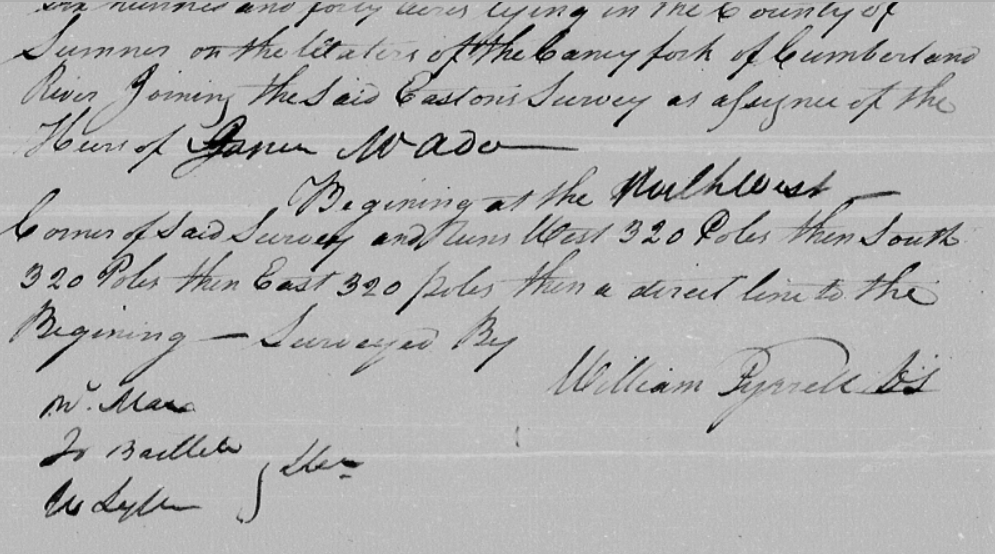 six hundred and forty acres lying in the County of
Sumner on the Waters of the Caney fork of Cumberland
River Joining the Said Easton's Survey as assignee of the
Heirs of Wade
Begining at the North West
Corner of Said Survey and Runs West 320 Poles then South
320 Poles then East 320 poles then a direct line to the
Begining — Surveyed By
William Tyrrell DS
Wm.